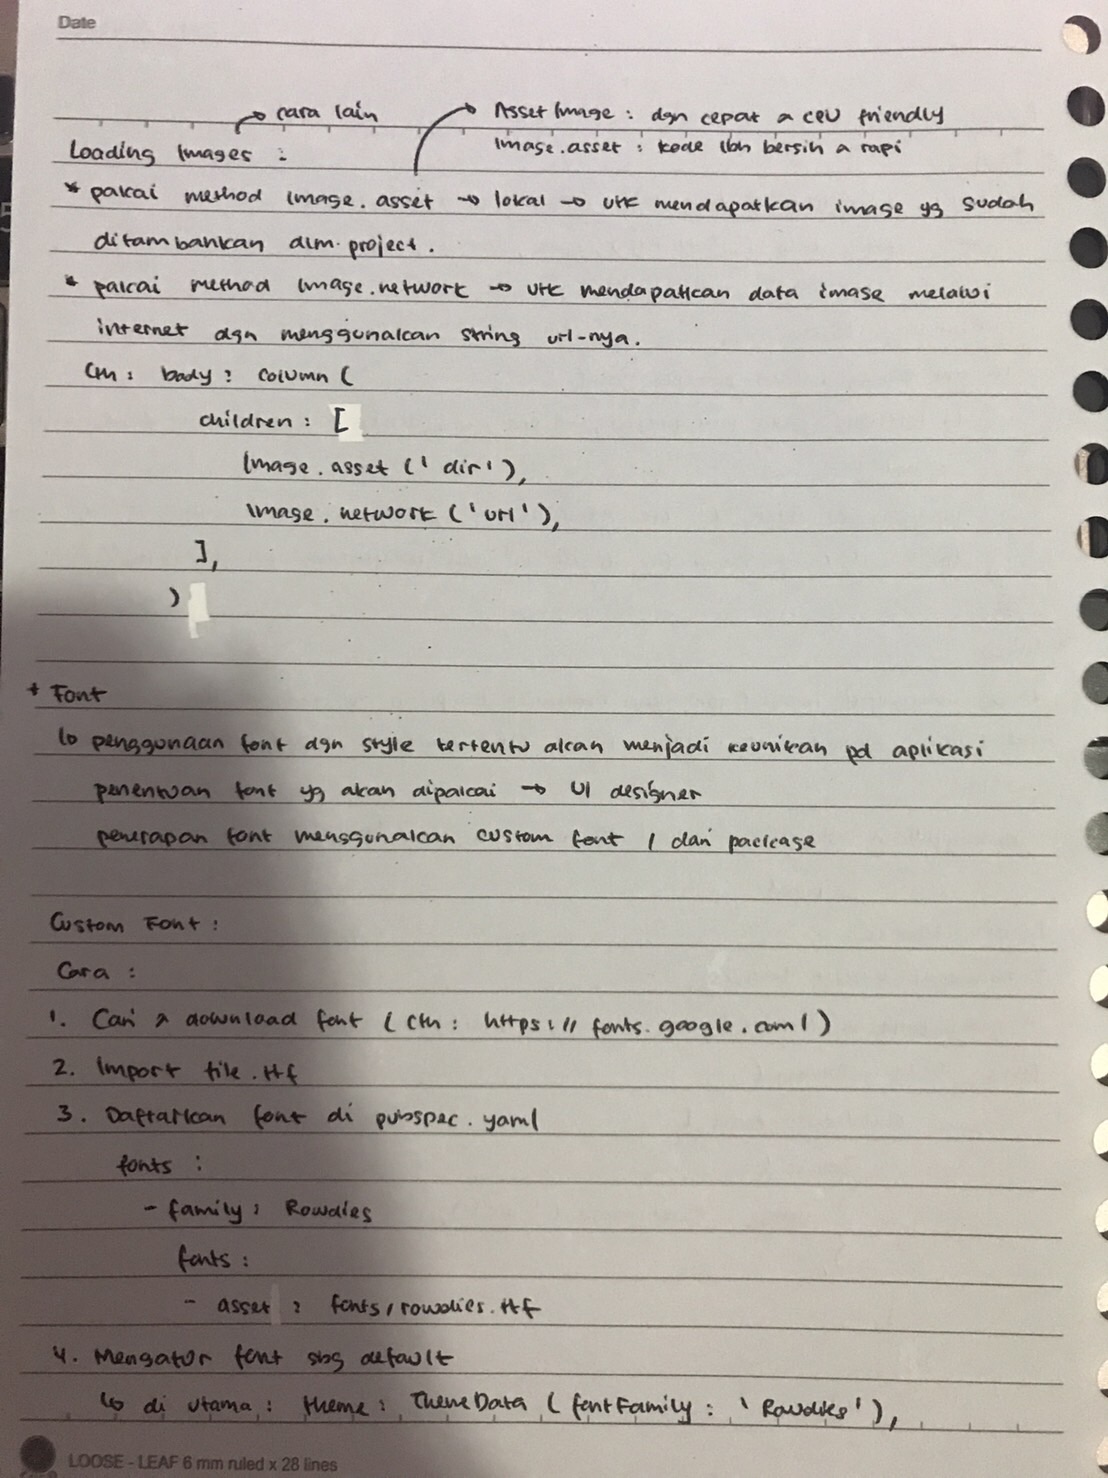 Date
cara lain
Asset Image : dgn cepat & CPU friendly
Image.asset : kode lbh bersih & rapi
Loading Images :
* pakai method Image.asset → lokal → utk mendapatkan image yg sudah
ditambahkan dlm project.
* pakai method Image.network → utk mendapatkan data image melalui
internet dgn menggunakan string url-nya.
Cth : body : Column (
children : [
Image.asset ('dir'),
Image.network ('url'),
],
)
* Font
↳ penggunaan font dgn style tertentu akan menjadi keunikan pd aplikasi
penentuan font yg akan dipakai → UI designer
penerapan font menggunakan custom font / dari package
Custom Font :
Cara :
1. Cari & download font (cth : https://fonts.google.com/)
2. Import file .ttf
3. Daftarkan font di pubspec.yaml
fonts :
- family : Rowdies
fonts :
- asset : fonts/rowdies.ttf
4. Mengatur font sbg default
↳ di utama : theme : ThemeData (fontFamily : 'Rowdies'),
LOOSE - LEAF 6 mm ruled x 28 lines